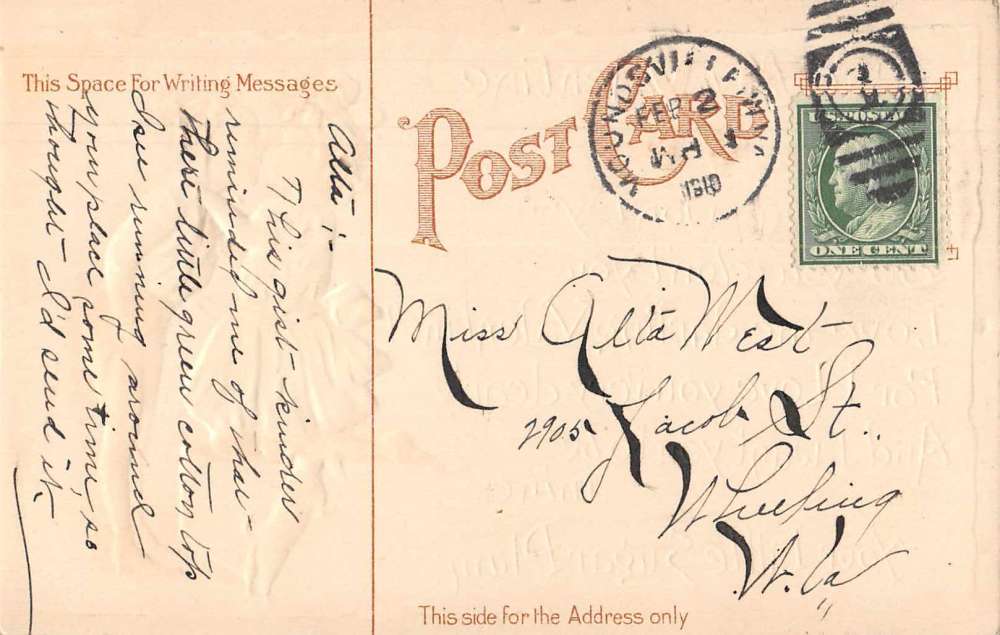 This Space For Writing Messages
Alta :-
This gist kinder
reminded me of that
there little green cotton top
I see running around
your place some time, so
thought I'd send it.
POST CARD
MOUNDSVILLE W.VA.
FEB 2
1910
U.S. POSTAGE
ONE CENT
Miss Alta West
2905 Jacob St.
Wheeling
W. Va
This side for the Address only